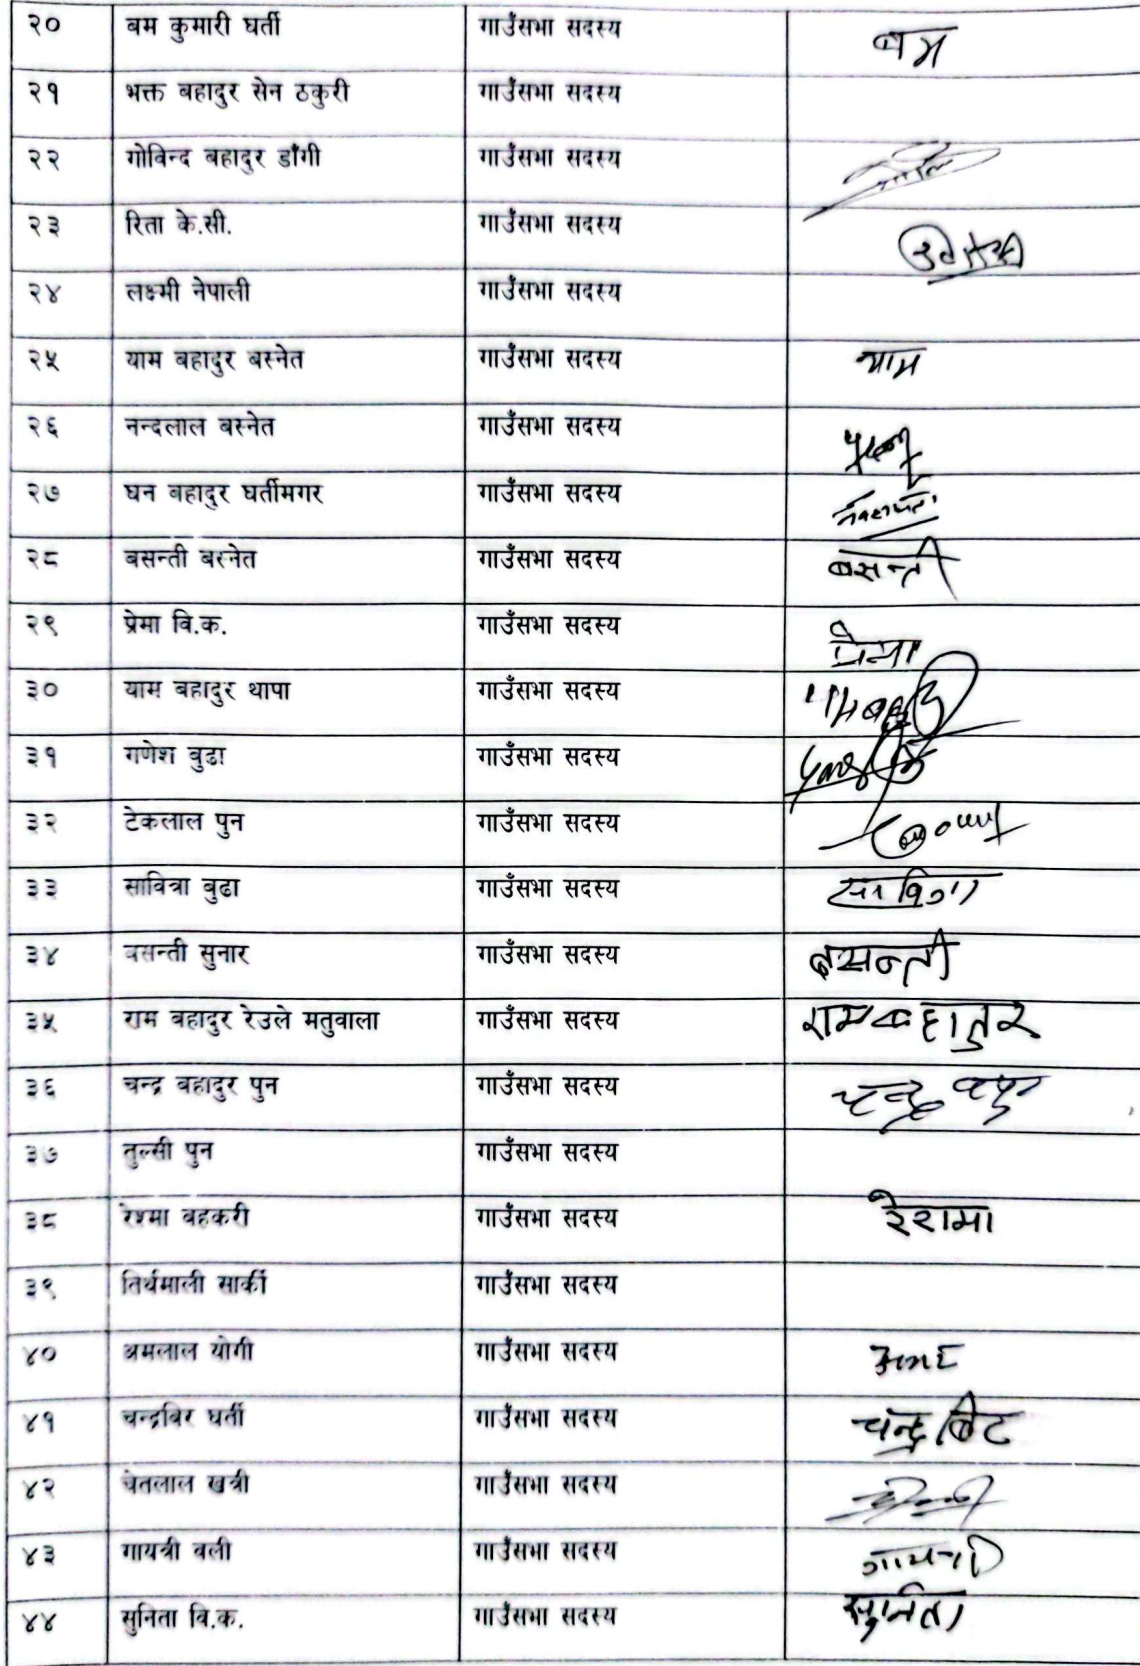 २० बम कुमारी घर्ती गाउँसभा सदस्य बम
२१ भक्त बहादुर सेन ठकुरी गाउँसभा सदस्य
२२ गोविन्द बहादुर डाँगी गाउँसभा सदस्य
२३ रिता के.सी. गाउँसभा सदस्य
२४ लक्ष्मी नेपाली गाउँसभा सदस्य
२५ याम बहादुर बस्नेत गाउँसभा सदस्य याम
२६ नन्दलाल बस्नेत गाउँसभा सदस्य
२७ घन बहादुर घर्तीमगर गाउँसभा सदस्य
२८ बसन्ती बस्नेत गाउँसभा सदस्य बसन्ती
२९ प्रेमा वि.क. गाउँसभा सदस्य प्रेमा
३० याम बहादुर थापा गाउँसभा सदस्य
३१ गणेश बुढा गाउँसभा सदस्य
३२ टेकलाल पुन गाउँसभा सदस्य
३३ सावित्रा बुढा गाउँसभा सदस्य
३४ बसन्ती सुनार गाउँसभा सदस्य बसन्ती
३५ राम बहादुर रेउले मतुवाला गाउँसभा सदस्य रामबहादुर
३६ चन्द्र बहादुर पुन गाउँसभा सदस्य
३७ तुल्सी पुन गाउँसभा सदस्य
३८ रेश्मा बहकरी गाउँसभा सदस्य रेशमा
३९ तिर्थमाली सार्की गाउँसभा सदस्य
४० अमलाल योगी गाउँसभा सदस्य
४१ चन्द्रबिर घर्ती गाउँसभा सदस्य चन्द्रबिर
४२ चेतलाल खत्री गाउँसभा सदस्य
४३ गायत्री वली गाउँसभा सदस्य
४४ सुनिता वि.क. गाउँसभा सदस्य सुनिता